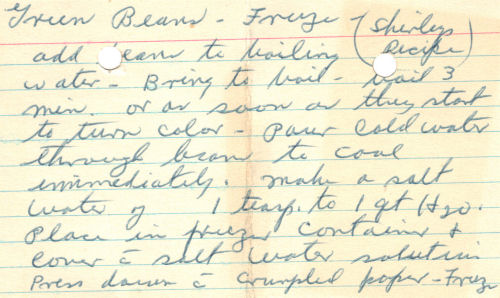 Green Beans - Freeze (Shirleys
Recipe)
add beans to boiling
water - Bring to boil - boil 3
min or as soon as they start
to turn color - Pour Cold water
through bean to cool
immediately. Make a salt
water of 1 teasp. to 1 qt H2O.
Place in freezer container &
cover c̄ salt water solution
Press down c̄ crumpled paper - Freeze